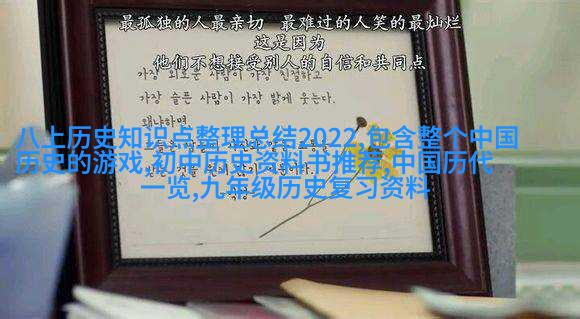 最孤独的人最亲切 最难过的人笑的最灿烂
这是因为
他们不想接受别人的自信和共同点
가장 외로운 사람이 가장 친절하고
가장 슬픈 사람이 가장 밝게 웃는다.
왜냐하면
八上历史知识点整理总结2022,包含整个中国
历史的游戏,初中历史资料书推荐,中国历代
一览,九年级历史复习资料